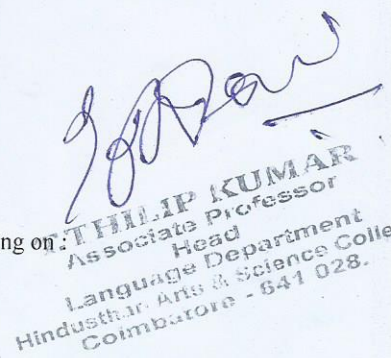 ng on :
T.THILIP KUMAR
Associate Professor
Head
Language Department
Hindusthan Arts & Science Colle
Coimbatore - 641 028.